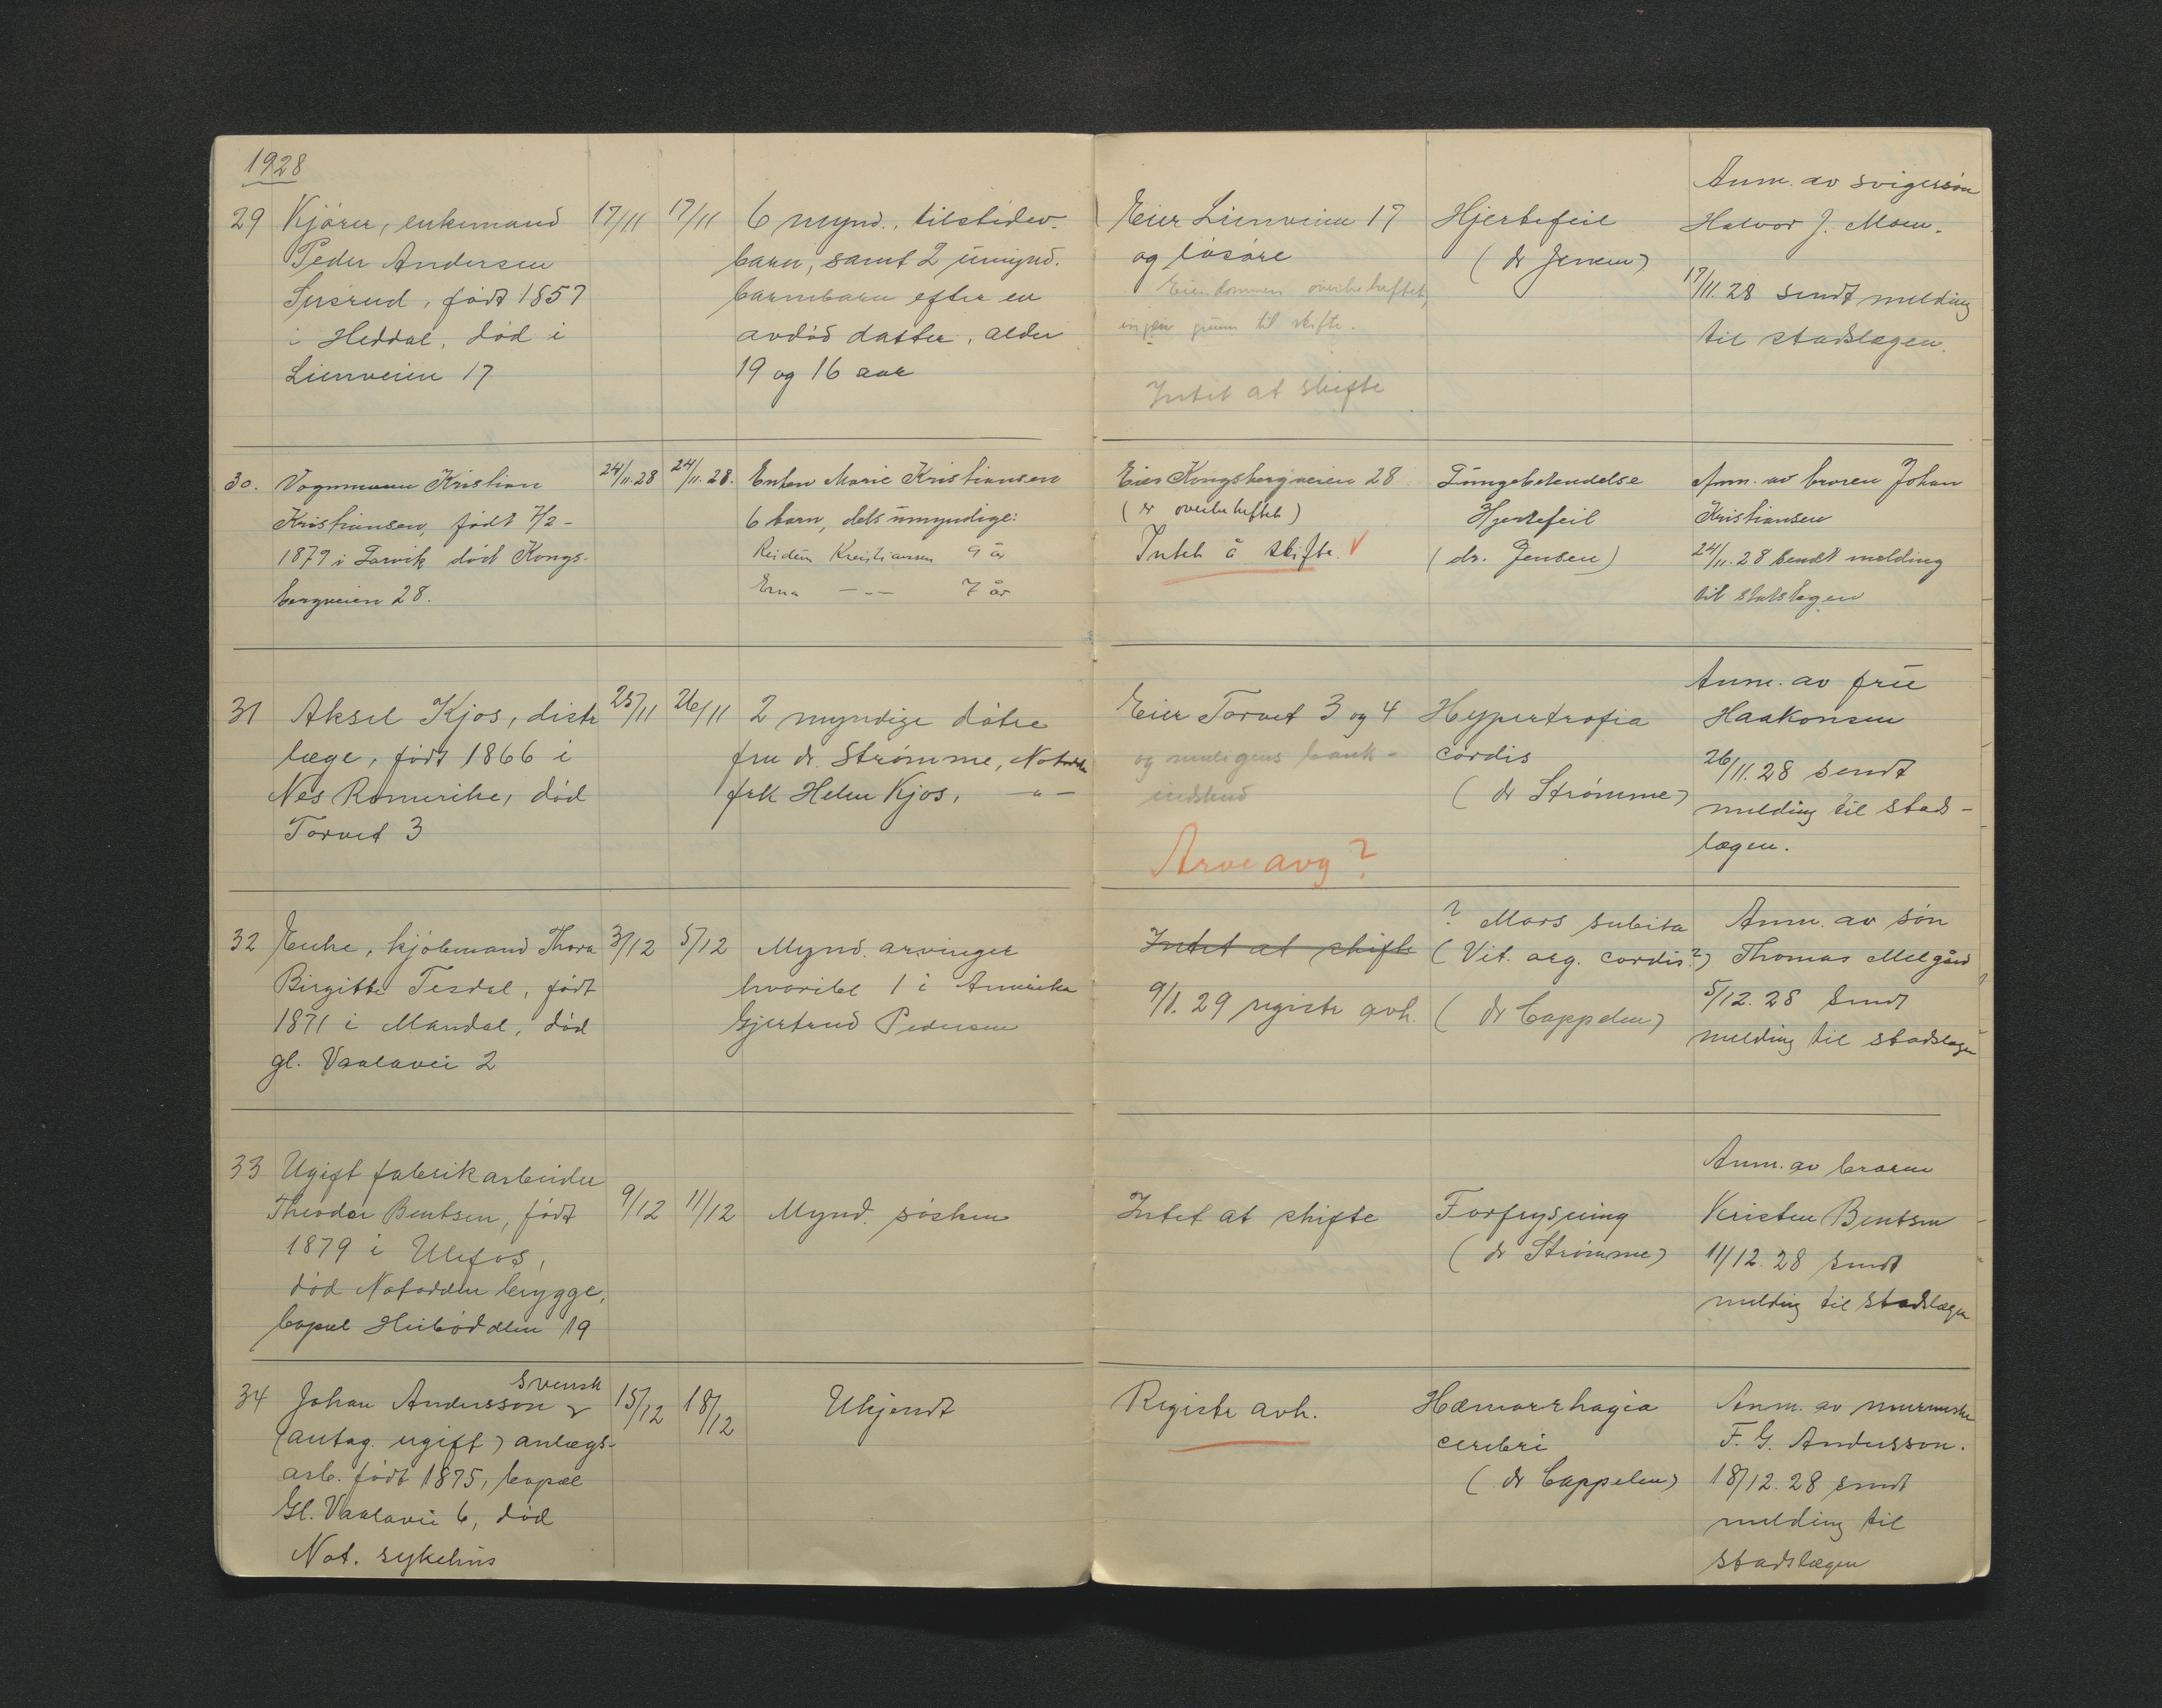 1928
29 Kjörer, enkemand 17/11 17/11 6 mynd., tilstedev.
Peder Andersen barn, samt 2 umynd.
Susrud, født 1857 barnebarn efter en
i Heddal, död i avdöd datter, alder
Lienveien 17 19 og 16 aar
Anm. av svigersøn
Eier Lienveien 17 Hjertefeil Halvor J. Moen.
og løsøre (dr Jensen)
Eiendommen overbeheftet, 17/11.28 sendt melding
ingen grunn til skifte. til stadslægen.
Intet at skifte
30. Vognmann Kristian 24/11.28 24/11.28. Enken Marie Kristiansen
Kristiansen, født 7/2- 6 barn, dels umyndige:
1879 i Larvik död Kongs- Reidun Kristiansen 9 år
bergveien 28. Erna -"- 7 år
Eier Kongsbergveien 28 Lungebetendelse Anm. av broren Johan
(er overbeheftet) Hjertefeil Kristiansen
Intet å skifte. V (dr. Jensen) 24/11.28 sendt melding
til stadslægen
31 Aksel Kjos, distr 25/11 26/11 2 myndige døtre
læge, født 1866 i fru dr. Strømme, Notodden
Nes Romerike, död frk Helen Kjos, -"-
Torvet 3
Anm. av frü
Eier Torvet 3 og 4 Hypertrofia Haakonsen
og muligens bank- cordis 26/11.28 sendt
indskud (dr Strømme) melding til stads-
Arveavg? lægen.
32 Enke, kjøbmand Thora 3/12 5/12 Mynd. arvinger
Birgitte Tesdal, født hvoribl 1 i Amerika
1871 i Mandal, död Gjertrud Pedersen
gl. Vaalavei 2
? Mors subita Anm. av søn
Intet at skifte (Vit. org. cordis?) Thomas Melgård
9/1.29 registr avh. (dr Cappelen) 5/12.28 sendt
melding til stadslægen
33 Ugift fabrikarbeider
Theodor Bentsen, født 9/12 11/12 Mynd. søsken
1879 i Ulefos,
död Notodden brygge,
bopæl Heibøddlen 19
Anm. av broren
Intet at skifte Forfrysning Kristen Bentsen
(dr Strømme) 11/12.28 sendt
melding til stadslægen
34 Johan Andersson svensk 15/12 18/12 Ukjendt
(antag. ugift) anlægs-
arb. født 1875, bopæl
Gl. Vaalavei 6, död
Not. sykehus
Registr avh. Hæmorrhagia Anm. av murmester
cerebri F. G. Andersson.
(dr Cappelen) 18/12.28 sendt
melding til
stadslægen